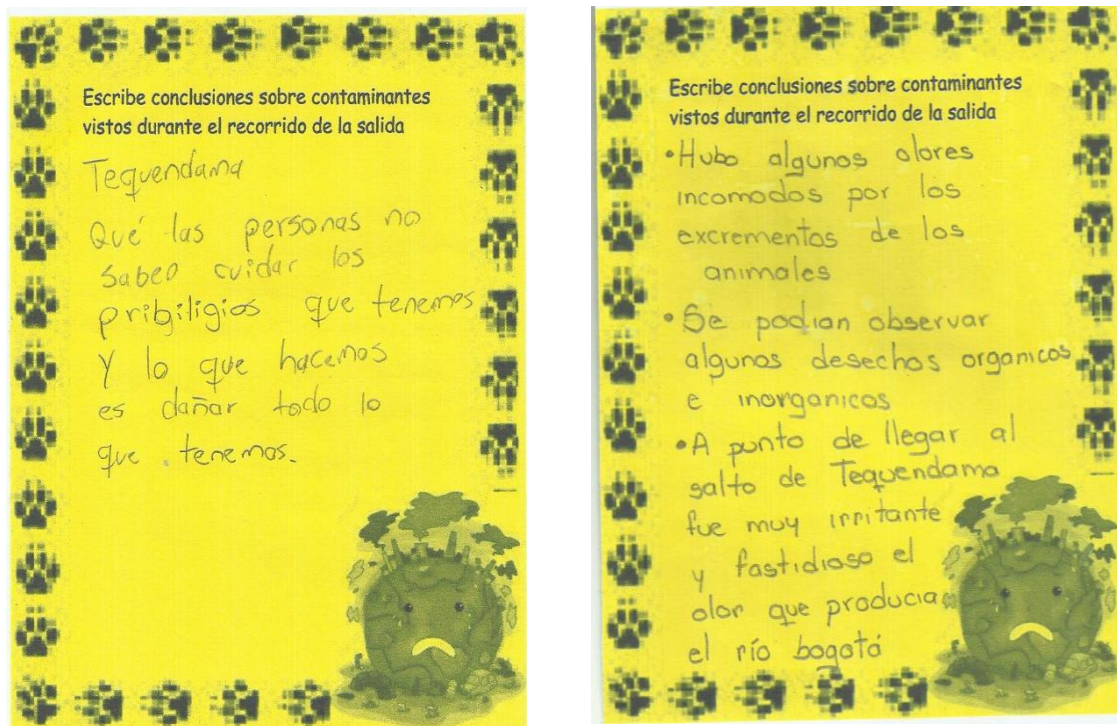 Escribe conclusiones sobre contaminantes
vistos durante el recorrido de la salida
Tequendama
Qué las personas no
saben cuidar los
pribiligios que tenemos
Y lo que hacemos
es dañar todo lo
que tenemos.
Escribe conclusiones sobre contaminantes
vistos durante el recorrido de la salida
•Hubo algunos olores
incomodos por los
excrementos de los
animales
•Se podian observar
algunos desechos organicos
e inorganicos
•A punto de llegar al
salto de Tequendama
fue muy irritante
y fastidioso el
olor que producia
el río bogotá